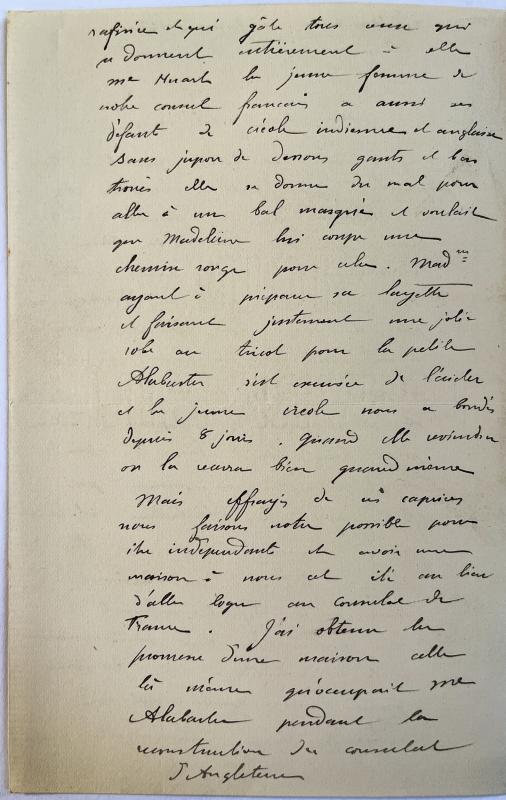 raffinée et qui gâte tous ceux qui
se donnent entièrement à elle
me Huart la jeune femme de
notre consul français a aussi ses
défauts de créole indienne et anglaise
sans jupon de dessous gants et bas
troués elle se donne du mal pour
aller à un bal masqué et voulait
que Madeleine lui coupe une
chemise rouge pour cela. Mad^ne
ayant à préparer sa layette
et faisant justement une jolie
robe au tricot pour la petite
Alabaster s'est excusée de l'aider
et la jeune creole nous a boudés
depuis 8 jours. Quand elle reviendra
on la recevra bien quand même
Mais effrayés de ces caprices
nous faisons notre possible pour
être indépendants et avoir une
maison à nous cet été au lieu
d'aller loger au consulat de
France. J'ai obtenu la
promesse d'une maison celle
là même qu'occupait me
Alabaster pendant la
reconstruction du consulat
d'Angleterre